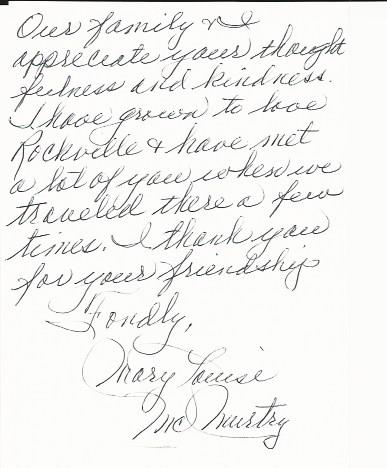 Our family & I
appreciate your thought
fulness and kindness.
I have grown to love
Rockville & have met
a lot of you when we
traveled there a few
times. I thank you
for your friendship
Fondly,
Mary Louise
Mc Murtry